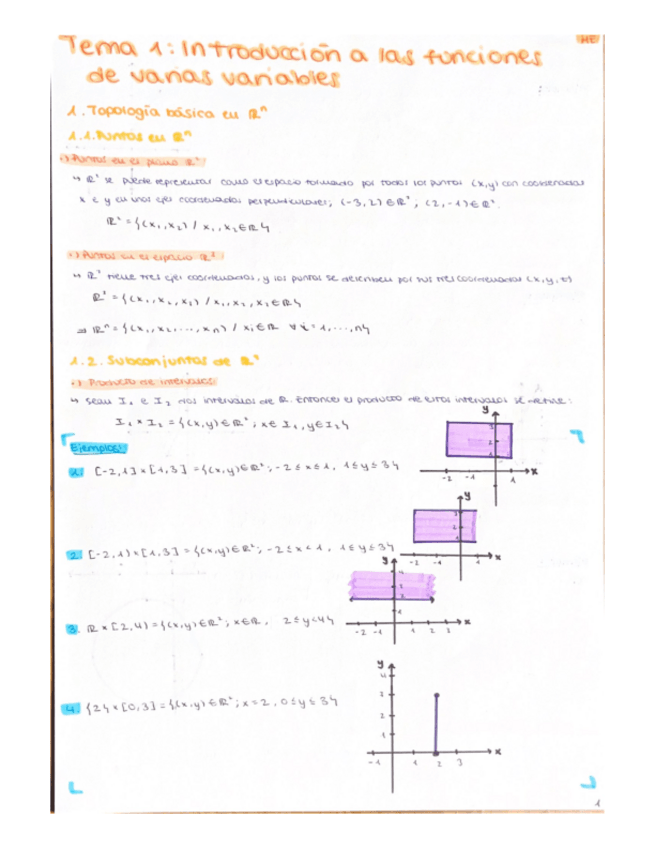 ME
Tema 1: Introducción a las funciones
de varias variables
1. Topología básica en ℝⁿ
1.1. Puntos en ℝⁿ
·) Puntos en el plano ℝ²:
↳ ℝ² se puede representar como el espacio formado por todos los puntos (x,y) con coordenadas
x e y en unos ejes coordenados perpendiculares; (-3,2) ∈ ℝ², (2,-1) ∈ ℝ².
ℝ² = {(x₁,x₂) / x₁,x₂ ∈ ℝ}
·) Puntos en el espacio ℝ³:
↳ ℝ³ tiene tres ejes coordenados, y los puntos se describen por sus tres coordenadas (x,y,z)
ℝ³ = {(x₁,x₂,x₃) / x₁,x₂,x₃ ∈ ℝ}
⇒ ℝⁿ = {(x₁,x₂,...,xₙ) / xᵢ ∈ ℝ ∀ i = 1,...,n}
1.2. Subconjuntos de ℝ²
·) Producto de intervalos:
↳ Sean I₁ e I₂ dos intervalos de ℝ. Entonces el producto de estos intervalos se define:
I₁ × I₂ = {(x,y) ∈ ℝ²; x ∈ I₁, y ∈ I₂}
Ejemplos:
1. [-2,1] × [1,3] = {(x,y) ∈ ℝ²; -2 ≤ x ≤ 1, 1 ≤ y ≤ 3}
y
3
2
1
-2 -1 1 x
2. [-2,1) × [1,3] = {(x,y) ∈ ℝ²; -2 ≤ x < 1, 1 ≤ y ≤ 3}
y
3
2
1
-2 -1 x
3. ℝ × [2,4) = {(x,y) ∈ ℝ²; x ∈ ℝ, 2 ≤ y < 4}
y
4
1
-2 -1 1 2 3 x
4. {2} × [0,3] = {(x,y) ∈ ℝ²; x = 2, 0 ≤ y ≤ 3}
y
4
3
2
1
-1 1 2 3 x
1